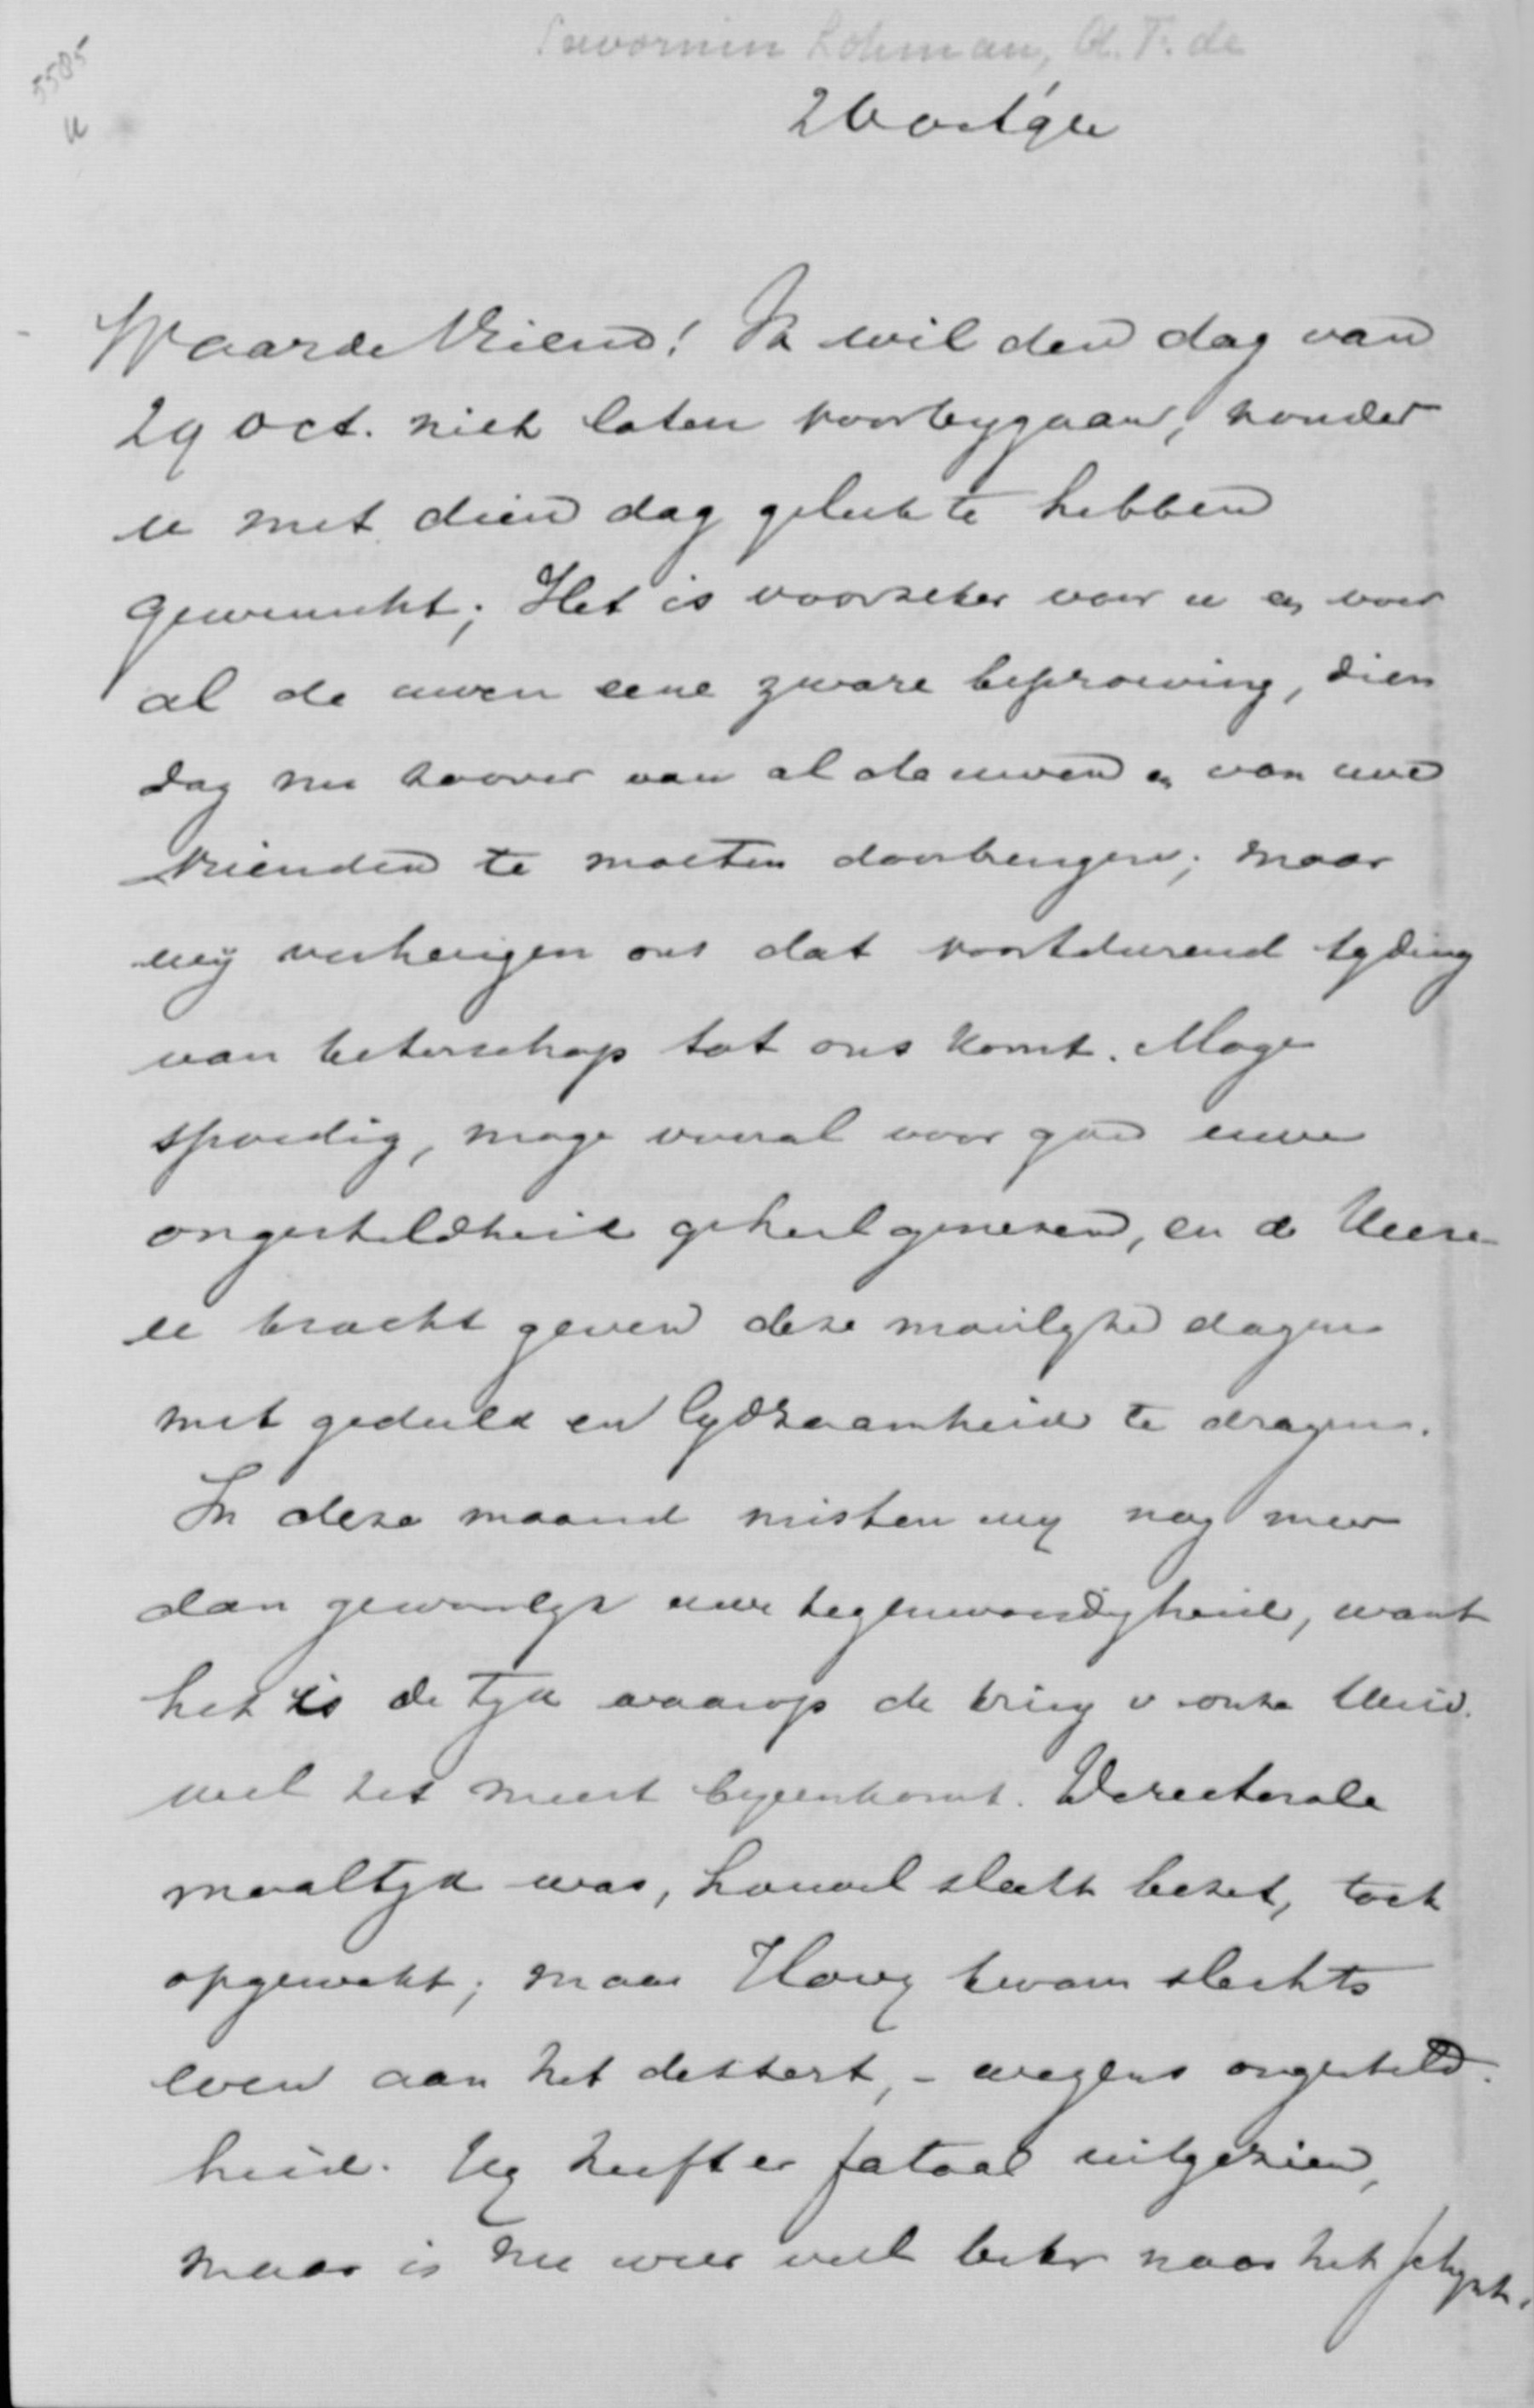 5585
u
Savornin Lohman, A. F. de
Waarde Vriend! Ik wil den dag van
29 Oct. niet laten voorbygaan, zonder
u met dien dag geluk te hebben
gewenscht; Het is voorzeker voor u en voor
al de uwen eene zware beproeving, dien
dag nu van al de uwen en van uwe
vrienden te moeten doorbrengen; maar
wy verheugen ons dat voortdurend tyding
van beterschap tot ons komt. Moge
spoedig, moge vooral voor goed uwe
ongesteldheid geheel genezen, en de Heere
u kracht geven deze moeilyke dagen
met geduld en lydzaamheid te dragen.
In deze maand misten wy nog meer
dan gewoonlyk uwe tegenwoordigheid, want
het is de tyd waarop de kring v onze Univ.
wel het meest byeenkomt. Directorale
maaltyd was, hoewel slecht bezet, toch
opgewekt; maar Hovy kwam slechts
even aan het dessert, - wegens ongesteld-
heid. Hy heeft er fataal uitgezien,
maar is nu weer veel beter naar het schynt.